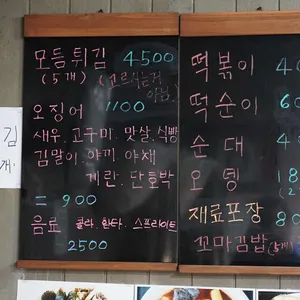 모듬튀김 4500
(5개) (고르시는거 아님)
오징어 1100
새우. 고구미. 맛살. 식빵
김말이. 야끼. 야채
계란. 단호박
= 900
음료 콜라. 환타. 스프라이트
2500
떡볶이
떡순이
순대
오뎅
재료포장
꼬마김밥
김
개